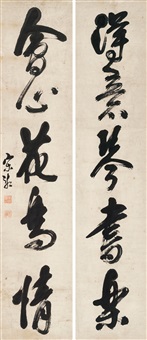 得意琴書樂
會心花鳥情